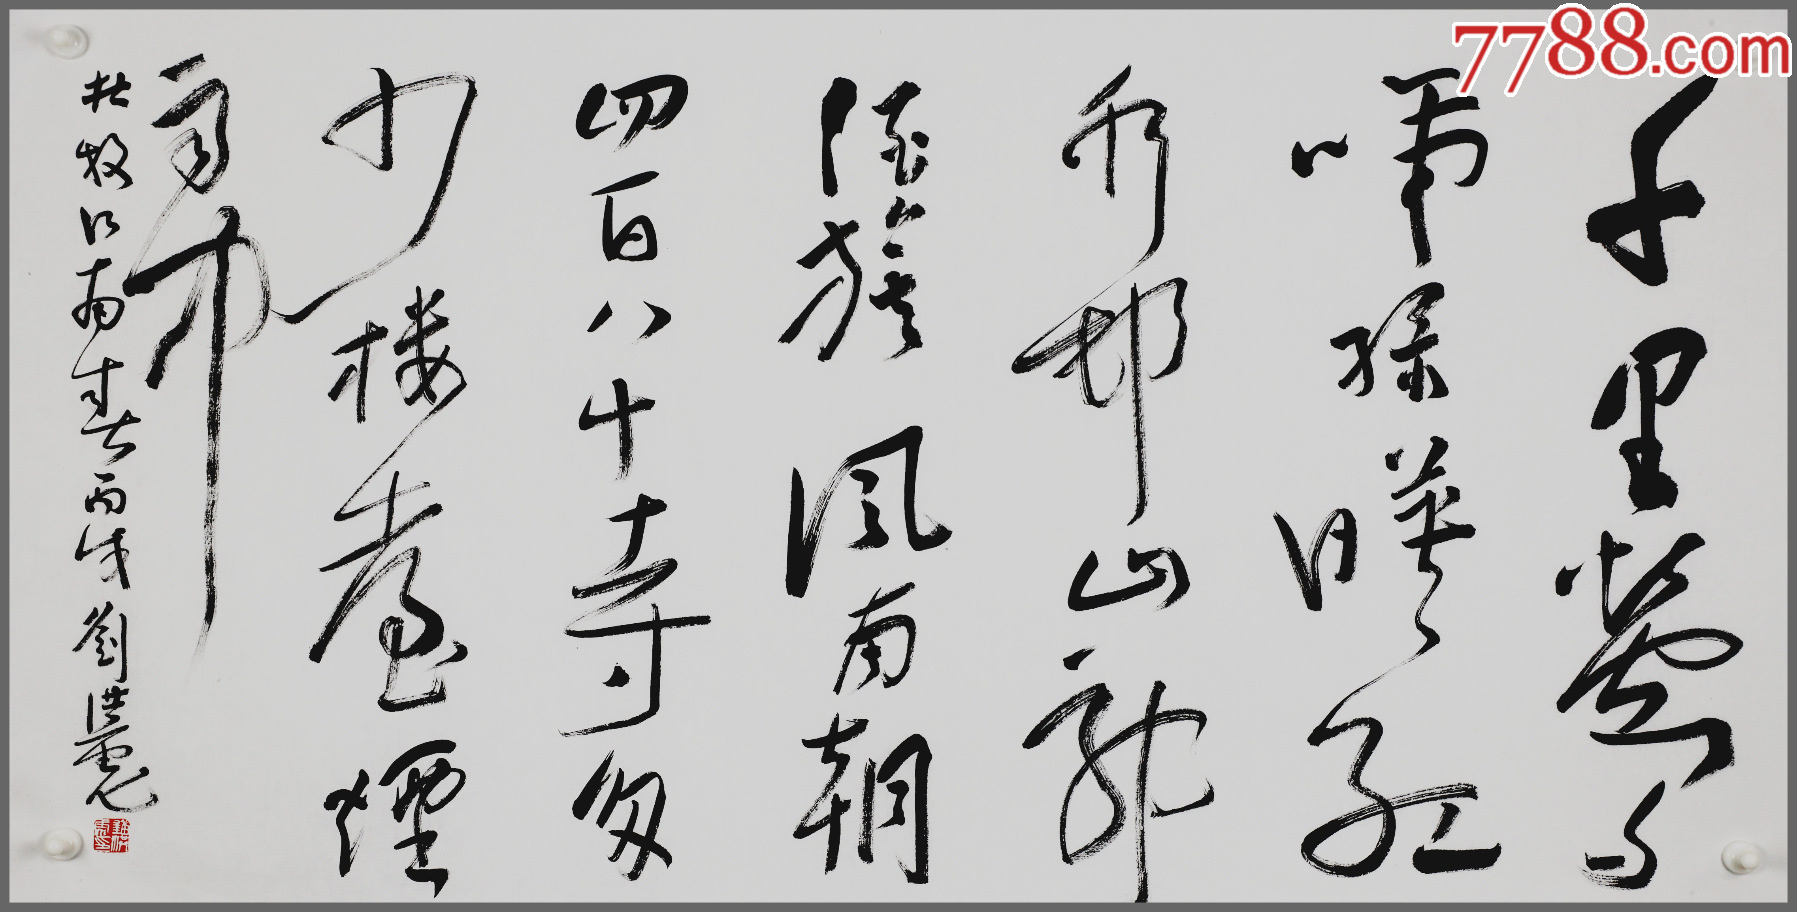 7788.com
千里鶯
啼綠映紅
水村山郭
酒旗風南朝
四百八十寺多
少楼臺煙
雨中
杜牧江南春丙戌劉洪彪